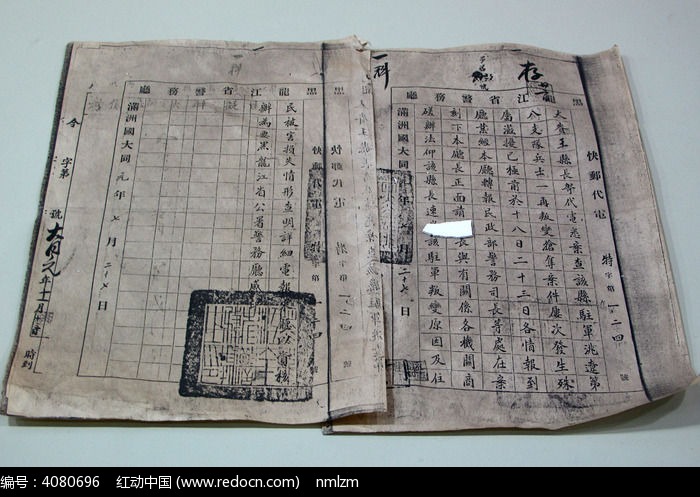 存
一科
黑龍江省警務廳
快郵代電
特字第一二四號
大賚王縣長幫代電悉案查該縣駐軍洮遼第
八支隊兵士一再叛變搶奪案件屢次發生殊
屬滋擾已極前於十八日二十三日各情報到
廳業經本廳轉報民政部警務司長等處在案
刻下本廳長正面請 長與有關係各機關商
磋辦法仰該縣長速 該駐軍叛變原因及住
滿洲國大同 年 月二十七日
一科
黑龍江省警務廳
快郵代電
民被害損失情形查明詳細電報 廳以資核
辦為要黑龍江省公署警務廳感
滿洲國大同元年七月二十七日
令 字第 號
時到
编号：4080696 红动中国 (www.redocn.com) nmlzm